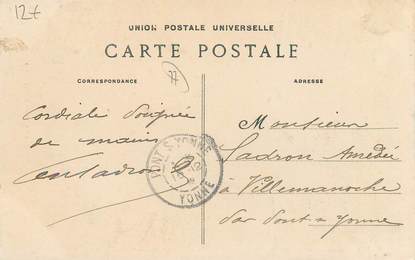 127
UNION POSTALE UNIVERSELLE
CARTE POSTALE
CORRESPONDANCE
ADRESSE
77
Cordiale Poignée
de main
PONT S YONNE
YONNE
Monsieur
Ladron Amédée
à Villemanoche
Par Pont s Yonne